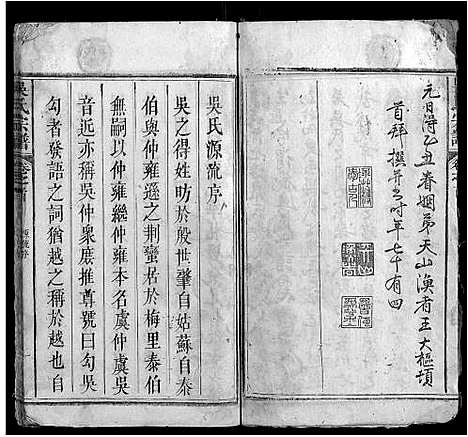 元日得乙丑眷姻弟天山漁者王大樞頓
首拜撰并書時年七十有四
吳氏源流序
吳之得姓昉於殷世肇自姑蘇自泰
伯與仲雍遜之荆蠻居於梅里泰伯
無嗣以仲雍繼仲雍本名虞仲虞吳
音近亦稱吳仲衆庶推尊號曰勾吳
勾者發語之詞猶越之稱於越也自
吳氏宗譜